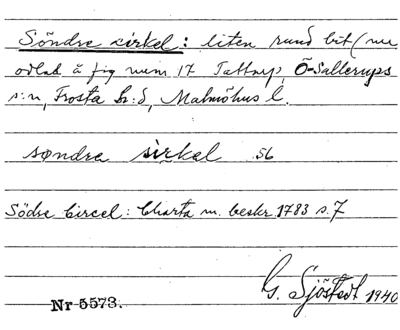 Söndre cirkel: liten rund bit (nu
odlad å fig num 17 Tattarp, Ö-Sallerups
s:n, Frosta h:d, Malmöhus l.
søndra sirkel 56
Södre Circel: Charta m. beskr 1783 s. 7
G. Sjöstedt 1940
Nr 5573.